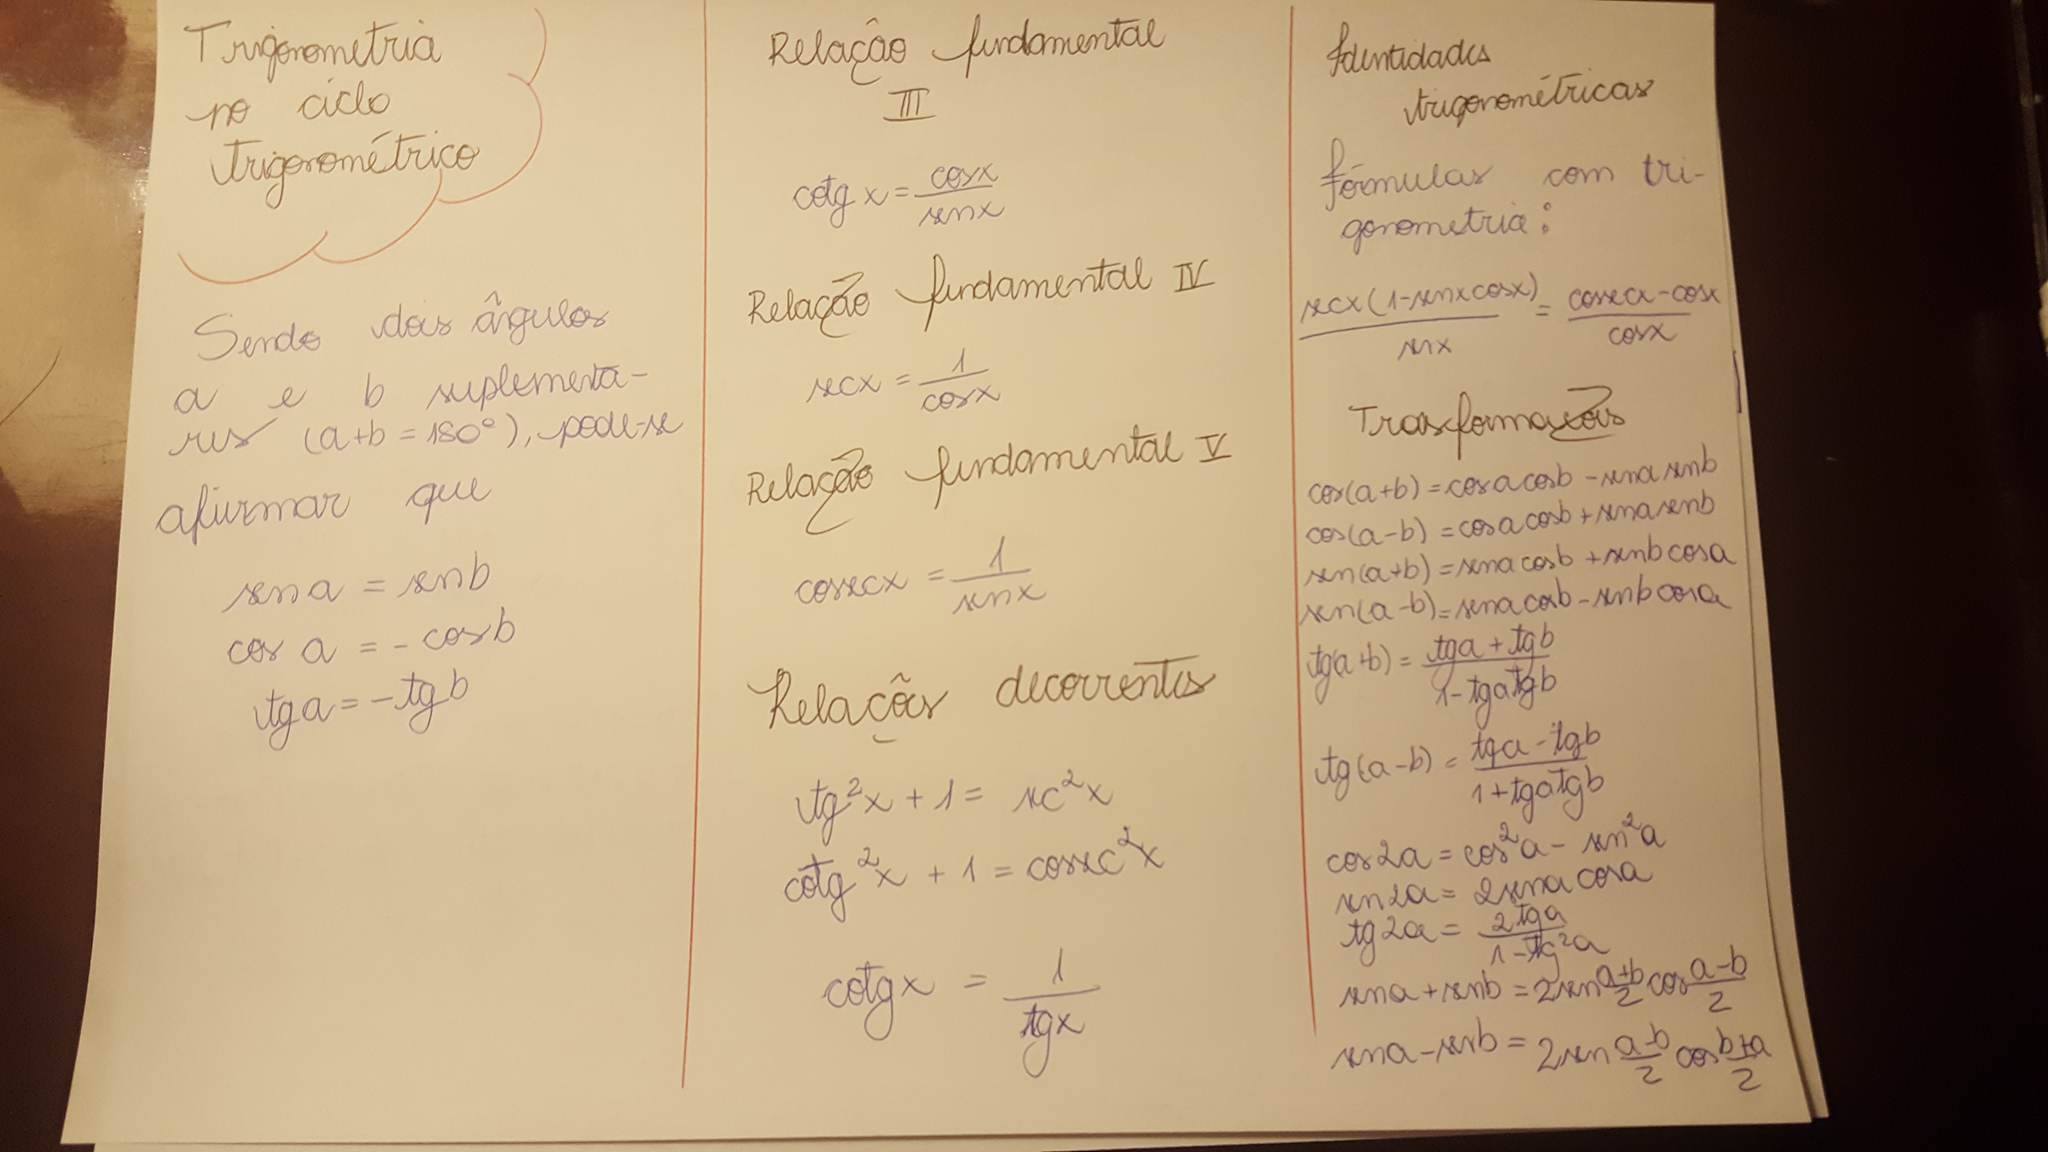 Trigonometria
no ciclo
trigonométrico
Sendo dois ângulos
a e b suplementa-
res (a+b=180°), pode-se
afirmar que
sen a = sen b
cos a = - cos b
tg a = - tg b
Relação fundamental
III
cotg x = cosx/senx
Relação fundamental IV
secx = 1/cosx
Relação fundamental V
cosecx = 1/senx
Relações decorrentes
tg²x + 1 = sec²x
cotg²x + 1 = cosec²x
cotgx = 1/tgx
Identidades
trigonométricas
fórmulas com tri-
gonometria:
secx(1-senxcosx)/senx = cosecx-cosx/cosx
Trasformações
cos(a+b)=cosacosb-senasenb
cos(a-b)=cosacosb+senasenb
sen(a+b)=senacosb+senbcosa
sen(a-b)=senacosb-senbcosa
tg(a+b)= tga+tgb/1-tgatgb
tg(a-b)= tga-tgb/1+tgatgb
cos2a=cos²a-sen²a
sen2a=2senacosa
tg2a= 2tga/1-tg²a
sena+senb=2sen a+b/2 cos a-b/2
sena-senb=2sen a-b/2 cos b+a/2